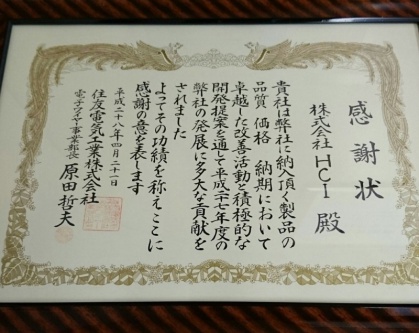 感謝状
株式会社HCI 殿
貴社は弊社に納入頂く製品の
品質 価格 納期において
卓越した改善活動と積極的な
開発提案を通して平成二十七年度の
弊社の発展に多大な貢献を
されました
よってその功績を称えここに
感謝の意を表します
平成二十八年四月二十一日
住友電気工業株式会社
電子ワイヤー事業部長 原田哲夫